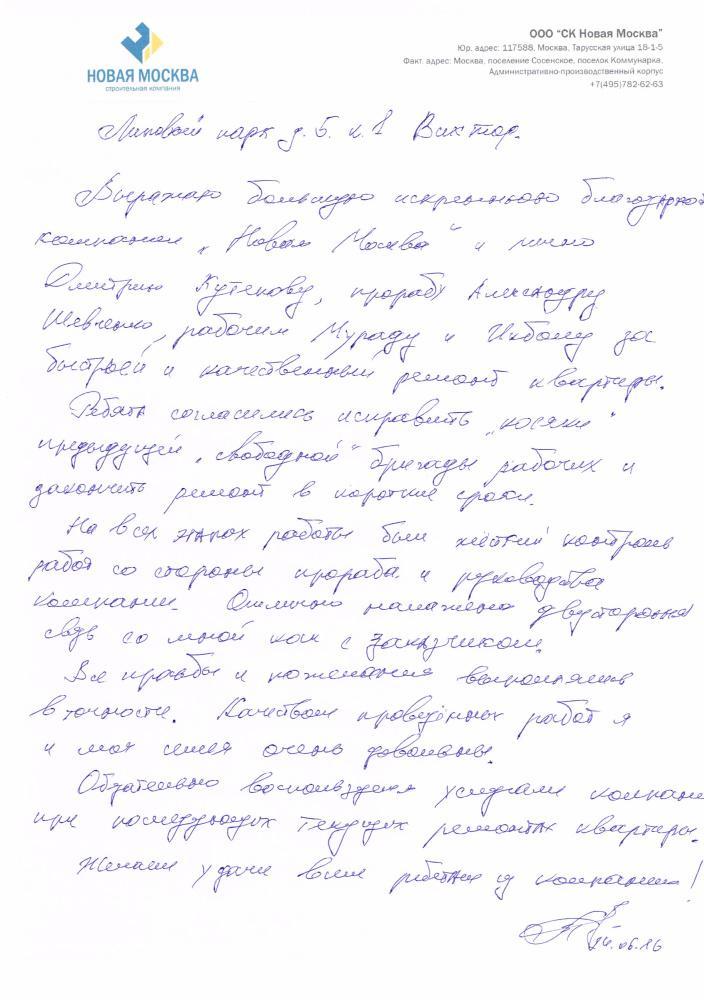 НОВАЯ МОСКВА
строительная компания
ООО "СК Новая Москва"
Юр. адрес: 117588, Москва, Тарусская улица 18-1-5
Факт. адрес: Москва, поселение Сосенское, поселок Коммунарка,
Административно-производственный корпус
+7(495)782-62-63
Липовый парк д. 5. к. 1 Виктор.
Выражаю большую искреннюю благодарность
компании „Новая Москва" и лично
Дмитрию Кутенкову, прорабу Александру
Шевченко, рабочим Мураду и Икболу за
быстрый и качественный ремонт квартиры.
Ребята согласились исправить „косяки"
предыдущей „свободной" бригады рабочих и
закончить ремонт в короткие сроки.
На всех этапах работы был жёсткий контроль
работ со стороны прораба и руководства
компании. Отлично налажена двусторонняя
связь со мной как с заказчиком.
Все просьбы и пожелания выполнялись
в точности. Качеством проведённых работ я
и моя семья очень довольны.
Обязательно воспользуемся услугами компании
при последующих текущих ремонтах квартиры.
Желаем удачи всем ребятам из компании!
24.06.16